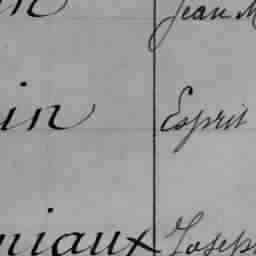 Jean
in Esprit
niaux Joseph